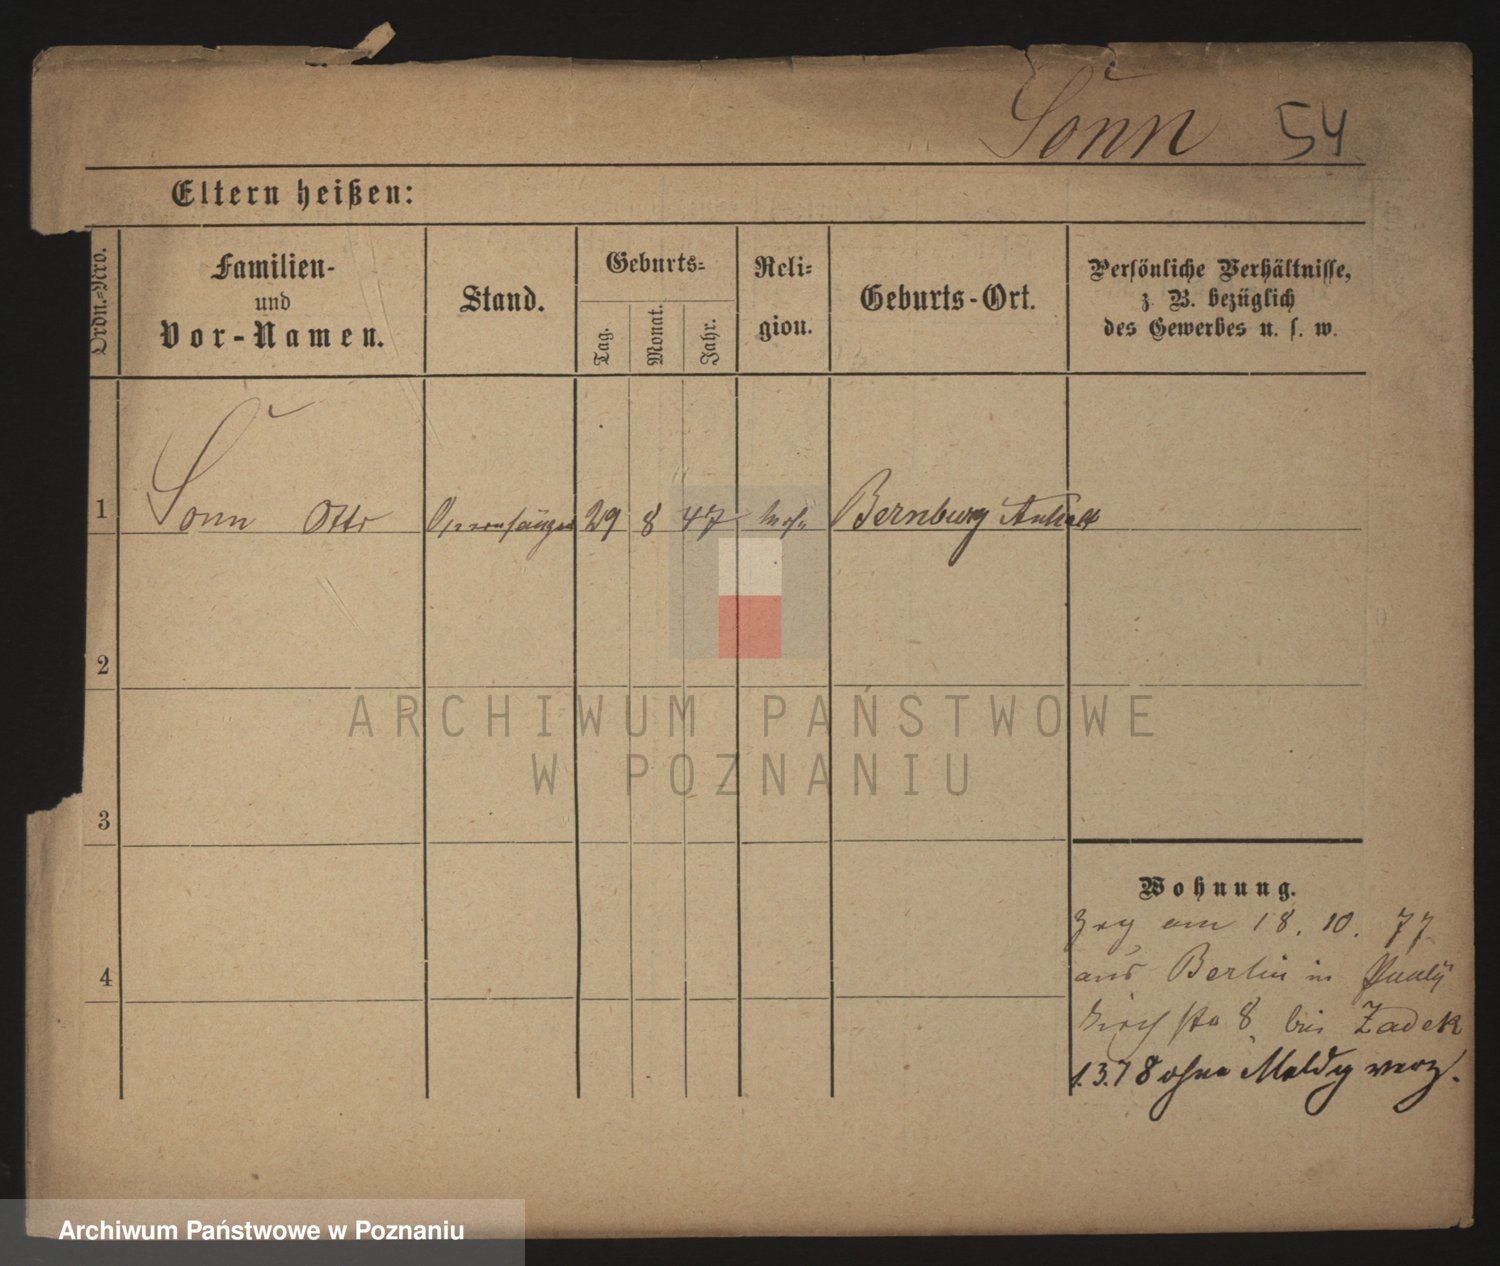 Sonn 54
Eltern heißen:
Ordn.-Nro.
Familien-
und
Vor-Namen.
Stand.
Geburts-
Tag.
Monat.
Jahr.
Reli-
gion.
Geburts-Ort.
Persönliche Verhältnisse,
z. B. bezüglich
des Gewerbes u. s. w.
1 Sonn Otto Opernsänger 29 8 47 Bernburg Anhalt
2
3
4
Wohnung.
Zzg am 18. 10. 77
aus Berlin in Pauly
Kirchstr 8 bei Zadek
1.3.78 ohne Meldg verz.
ARCHIWUM PAŃSTWOWE
W POZNANIU
Archiwum Państwowe w Poznaniu